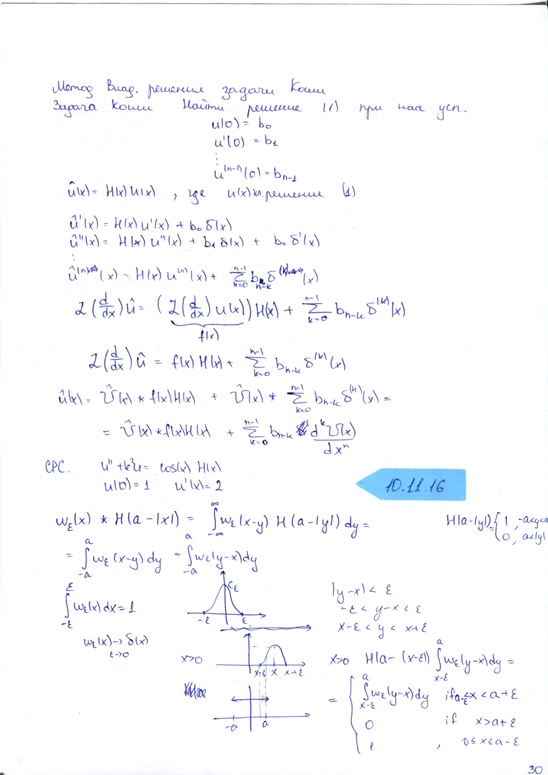 Метод Влад. решения задачи Коши
Задача Коши Найти решение (1) при нач усл.
u(0) = b₀
u'(0) = b₁
⋮
u⁽ⁿ⁻¹⁾(0) = bₙ₋₁
û(x) = H(x) u(x) , где u(x) кл. решение (1)
û'(x) = H(x) u'(x) + b₀ δ(x)
û''(x) = H(x) u''(x) + b₁ δ(x) + b₀ δ'(x)
⋮
û⁽ⁿ⁾(x) = H(x) u⁽ⁿ⁾(x) + Σ_{k=0}^{n-1} b_{n-k} δ⁽ᵏ⁾(x)
L(d/dx) û = (L(d/dx) u(x)) H(x) + Σ_{k=0}^{n-1} b_{n-k} δ⁽ᵏ⁾(x)
f(x)
L(d/dx) û = f(x) H(x) + Σ_{k=0}^{n-1} b_{n-k} δ⁽ᵏ⁾(x)
û(x) = Û(x) * f(x) H(x) + Û(x) * Σ_{k=0}^{n-1} b_{n-k} δ⁽ᵏ⁾(x) =
= Û(x) * f(x) H(x) + Σ_{k=0}^{n-1} b_{n-k} dᵏ Û(x) / dxⁿ
СРС. u'' + k²u = cos(x) H(x)
u(0) = 1 u'(x) = 2
10.11.16
w_ε(x) * H(a - |x|) = ∫_{-∞}^{∞} w_ε(x-y) H(a - |y|) dy =
H(a-|y|) = { 1, -a<y<a
0, a<|y|
= ∫_{-a}^{a} w_ε(x-y) dy = ∫_{-a}^{a} w_ε(y-x) dy
∫_{-ε}^{ε} w_ε(x) dx = 1
C_ε
-ε ε
|y-x| < ε
-ε < y-x < ε
x-ε < y < x+ε
w_ε(x) → δ(x)
ε→0
x>0
x-ε x x+ε
x>0 H(a - (x-ε)) ∫_{x-ε}^{a} w_ε(y-x) dy =
-a a
= { ∫_{x-ε}^{a} w_ε(y-x) dy if a-ε<x<a+ε
0 if x>a+ε
1 , 0≤x<a-ε
30